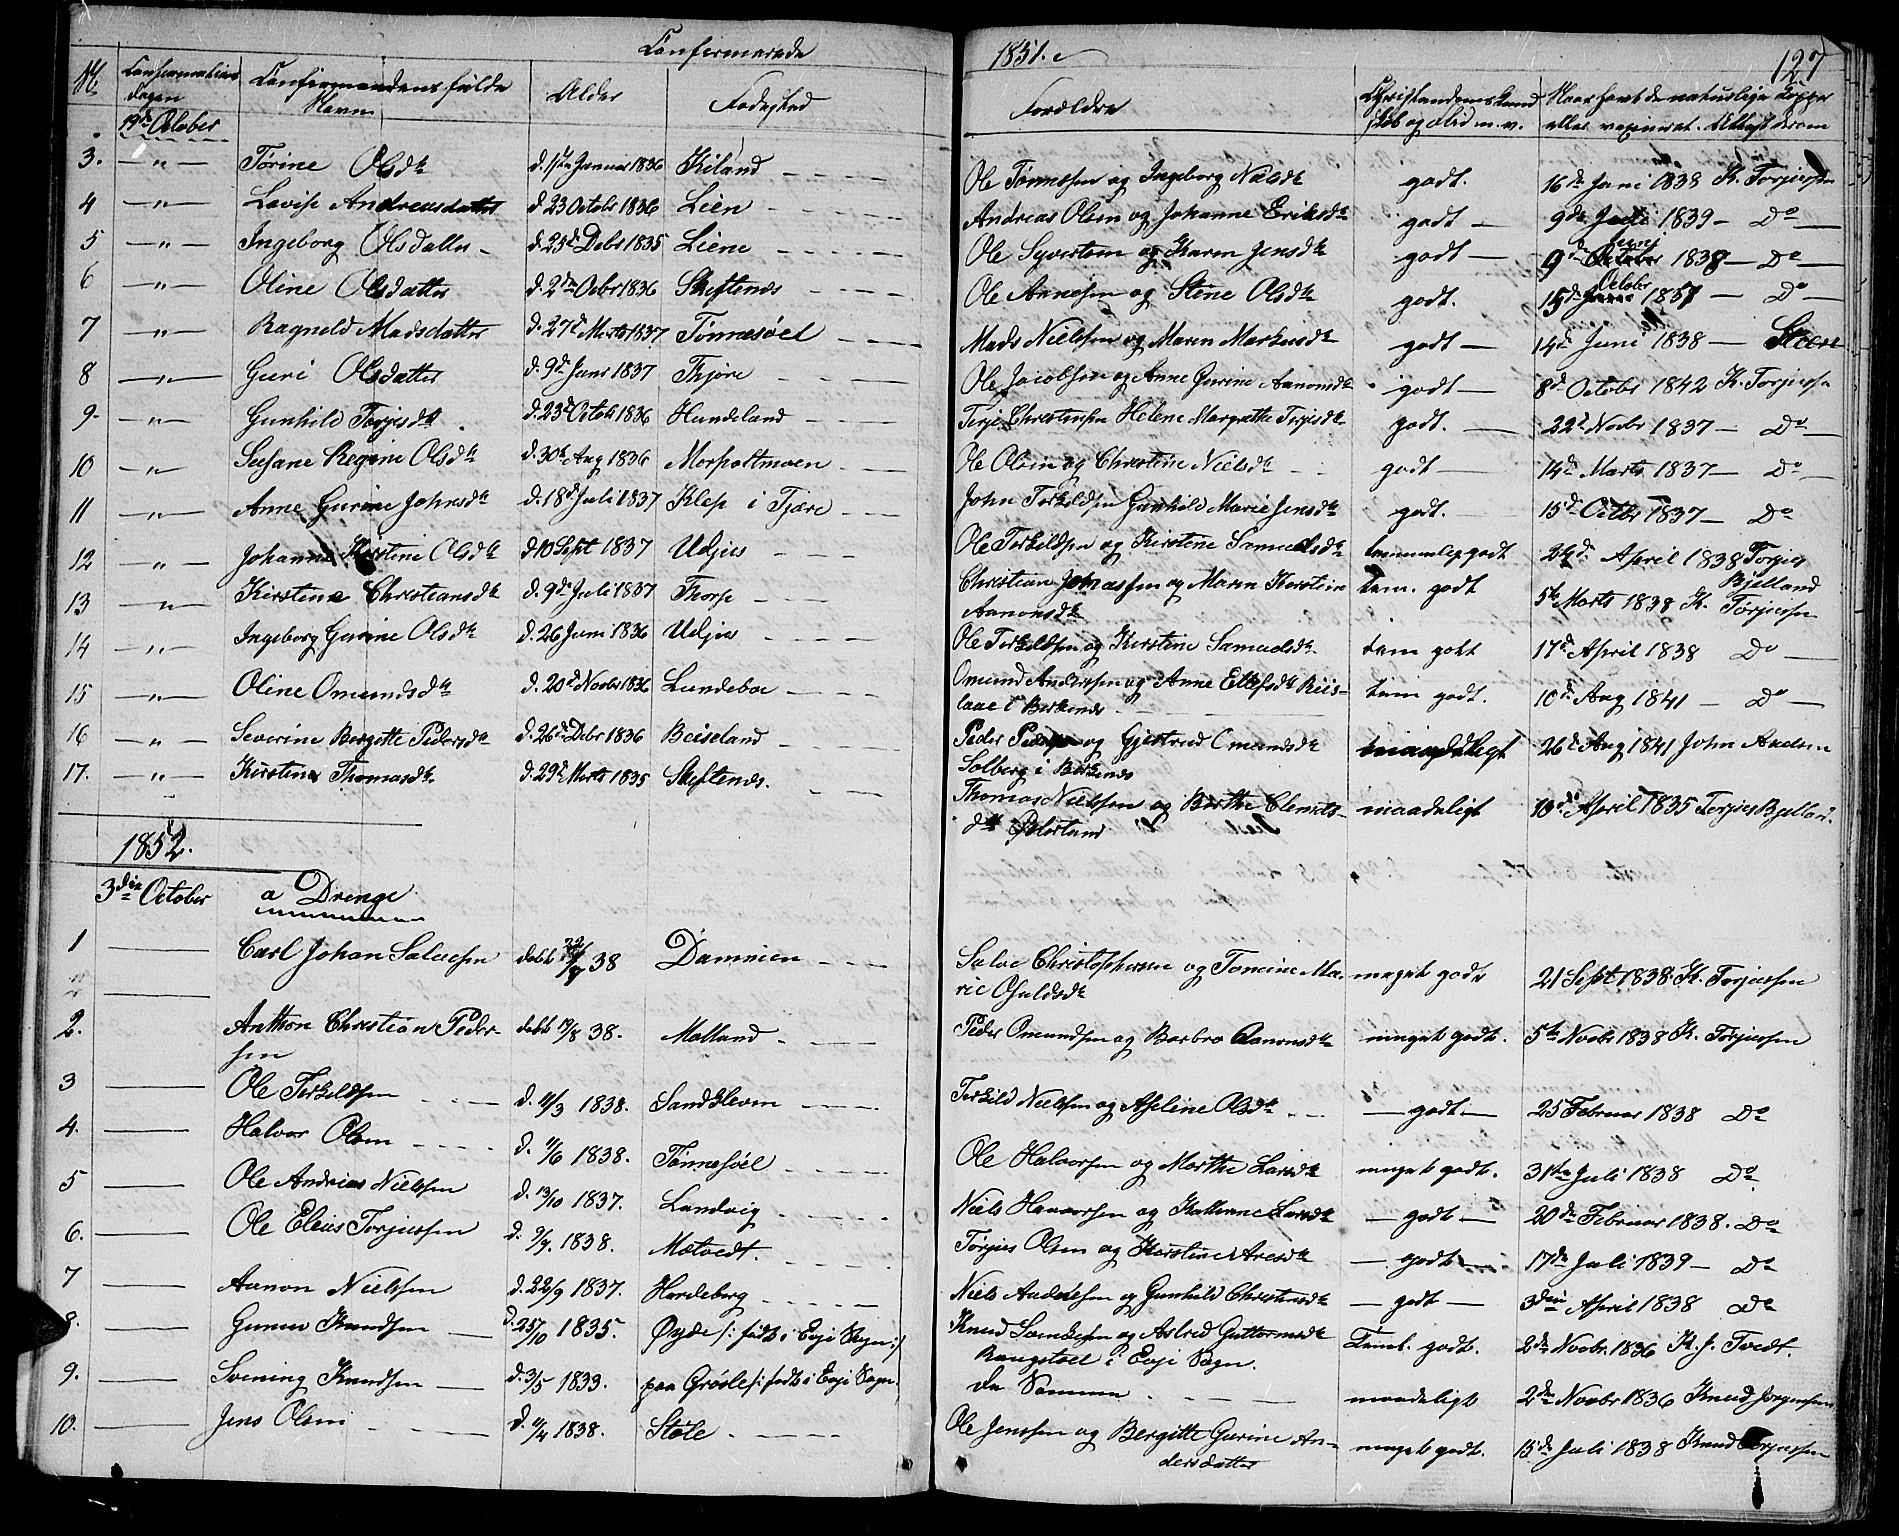 Confirmerede 1851.
127
No
Confirmations dagen
Confirmandens fulde Navn
Alder
Fødested
Forældre
Christendomskund skab og Flid m. v.
Naar havt de naturlige Kopper eller vaxineret. Attest derom
19de October
3. — " — Tørine Olsdtr d. 1ste Januar 1836 Kiland Ole Tønnessen og Ingeborg Nielsdtr godt. 16de Juni 1838 K. Torjussen
4 — " — Lovise Andreasdatter d. 23 Octobr 1836 Lien Andreas Olsen og Johanne Eriksdtr godt 9de 1839 — Do
5 — " — Ingeborg Olsdatter d. 25de Debr 1835 Liene Ole Syvertsen og Karen Jensdtr godt 9de Juni 1838 — Do
6 — " — Oline Olsdatter d. 2den Octbr 1836 Skiftenes Ole Annesen og Stine Olsdtr godt. 15de October 1851 — Do
7 — " — Ragnild Madsdatter d. 27de Marts 1837 Tønnesøel Mads Nielssen og Maren Markusdtr godt 14de Juni 1838
8 — " — Guri Olsdatter d. 9de Janr 1837 Thjøre Ole Jacobsen og Anne Gurine Aanonsdtr godt 8de Octobr 1842 K. Torjussn
9. — " — Gunhild Torjusdtr d. 23de Octob 1836 Hundeland Terje Christensen Helene Margrethe Terjesdtr godt. 22de Novbr 1837 — Do
10 — " — Susane Regine Olsdtr d. 30te Aug 1836 Morpostmoen Ole Olsen og Christine Nielsdtr godt 14de Marts 1837 — Do
11 — " — Anne Gurine Johnsdtr d. 18de Juli 1837 Klep i Tjøre John Torkildsen Gunhild Marie Jensdtr godt. 15de Octbr 1837 — Do
12 — " — Johanne Kirstine Olsdtr d 10 Sept 1837 Udjus Ole Terkildsen og Kirstine Samuelsdtr temmeligodt 24de April 1838 Torjus Bjelland
13 — " — Kirstine Christiansdtr d. 9de Juli 1837 Thorp Christian Jonassen og Maren Kirstine Aanonsdtr tem. godt 5te Marts 1838 K. Torjussen
14 — " — Ingeborg Gurine Olsdtr d. 26 Juni 1836 Udjus Ole Terkildsen og Kirstine Samuelsdtr. tem godt 17de April 1838 Do
15 — " — Oline Omundsdtr d. 20de Novbr 1836 Lundeboe Omund Andersen og Anne Ellefsdtr i Birkenes tem godt. 10de Aug 1841 — Do
16 — " — Severine Bergitte Pedersdtr d. 26de Debr 1836 Beiseland Peder Pedersen og Gjertrud Omundsdtr Solberg i Birkenes maadeligt 26de Aug 1841 John Axelsen
17. — " — Kirstine Thomasdtr d. 29de Marts 1835 Skiftenes. Thomas Nielssen og Birthe Clemetsdtr maadeligt 10de April 1835 Torjus Bjelland.
1852.
3die October a Drenge
1 Carl Johan Salvesen døbt 22/7 38 Dammen Salve Christophersen og Tomine Marie Osuldsdtr meget godt 21 Sept 1838 K. Torjussen
2. Anthon Christian Pedersen døbt 19/8 38. Molland Peder Omundsen og Barbro Aanonsdtr meget godt. 5te Novbr 1838 K. Torjussen
3 Ole Terkildsen d. 11/3 1838. Sandkleven Terkild Nielssen og Aseline Olsdtr — godt — 25 Februar 1838 Do
4. Halvor Olsen d. 11/6 1838. Tønnesøel Ole Halvorsen og Marthe Larsdtr meget godt. 31te Juli 1838 Do
5 Ole Andreas Nielssen d. 13/10 1837. Landvig Niels Halvorsen og Kathrine Larsdtr — godt — 20de Februar 1838. Do
6. Ole Elius Torjussen d. 9/7. 1838. Møtvedt. Torjus Olsen og Kirstine Aresdtr — godt — 17de Juli 1839 — Do
7 Aanon Nielssen d. 22/9 1837. Hardeberg Niels Andersen og Gunhild Christensdtr — godt — 3die April 1838 Do
8. Gunner Knudsen d. 25/10 1835. Øyde /: født i Evje Sogn :/ Knud og Astrid Guttormsdtr i Evje Sogn. Teml. godt. 2den Novbr. 1836 K. J. Tvedt.
9. Svening Knudsen d. 3/5 1833. paa Grøsle /: født i Evje Sogn De Samme maadeligt 2den Novbr 1836 Knud Jørgensen
10. Jens Olsen d. 11/4 1838. Støle Ole Jenssen og Bergitte Gurine Andersdatter meget godt. 15de Juli 1838 Knud Torjussen